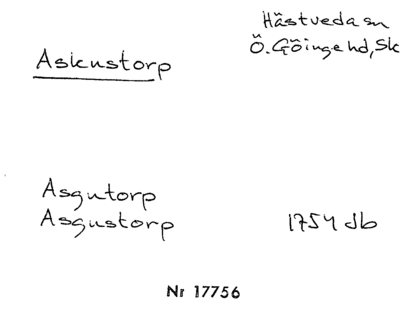 Hästveda sn
Ö. Göinge hd, Sk
Askustorp
Asgutorp
Asgustorp 1754 Jb
Nr 17756